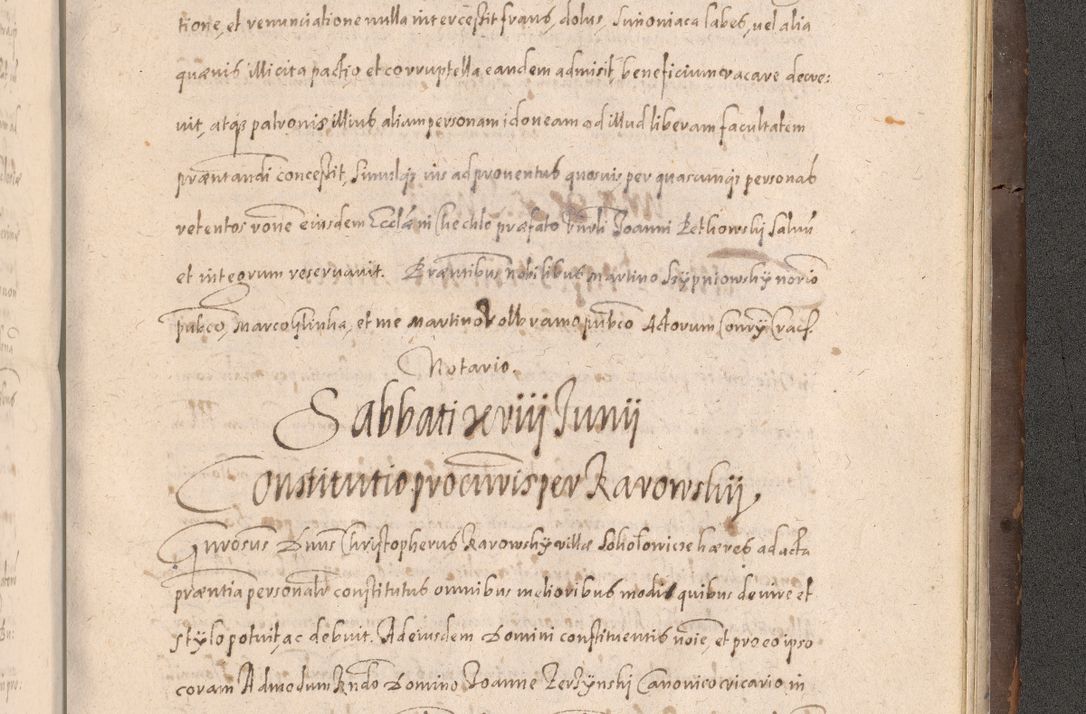 tione, et renuncialione nulla intercessit fraus, dolus, Simoniaca labes, uel alia
quæuis illicita pactio, et corruptella, eandem admisit, beneficium vacare decre:
uit, atq3 patronis illius aliam personam idoneam ad illud liberam facultatem
præntandi concessit, Simulq3 ius ad prouentus quosuis per quascumq3 personas
retentos rone eiusdem Ecclæ in Chechlo præfato Vnrli Joanni Rethowskij saluũ
et integrum reseruauit. Præntibus nobilibus Martino Skypniowsky norio
pubco, Marco Glinka, et me Martino Wolbramo pubco Actorum Conry Crac.
Notario.
Sabbati xviij Junij
Constitutio procuris per Karowskij.
Gnrosus Dnus Christopherus Karowsky villæ Sokolonicze hæres ad acta
præntia personalr constitutus omnibus melioribus modis quibus de iure et
stylo potuit ac debuit. Ad eiusdem Domini constituentis noie, et pro eo ipso
coram Admodum Rndo Domino Joanne Jerzynski Canonico vicario in